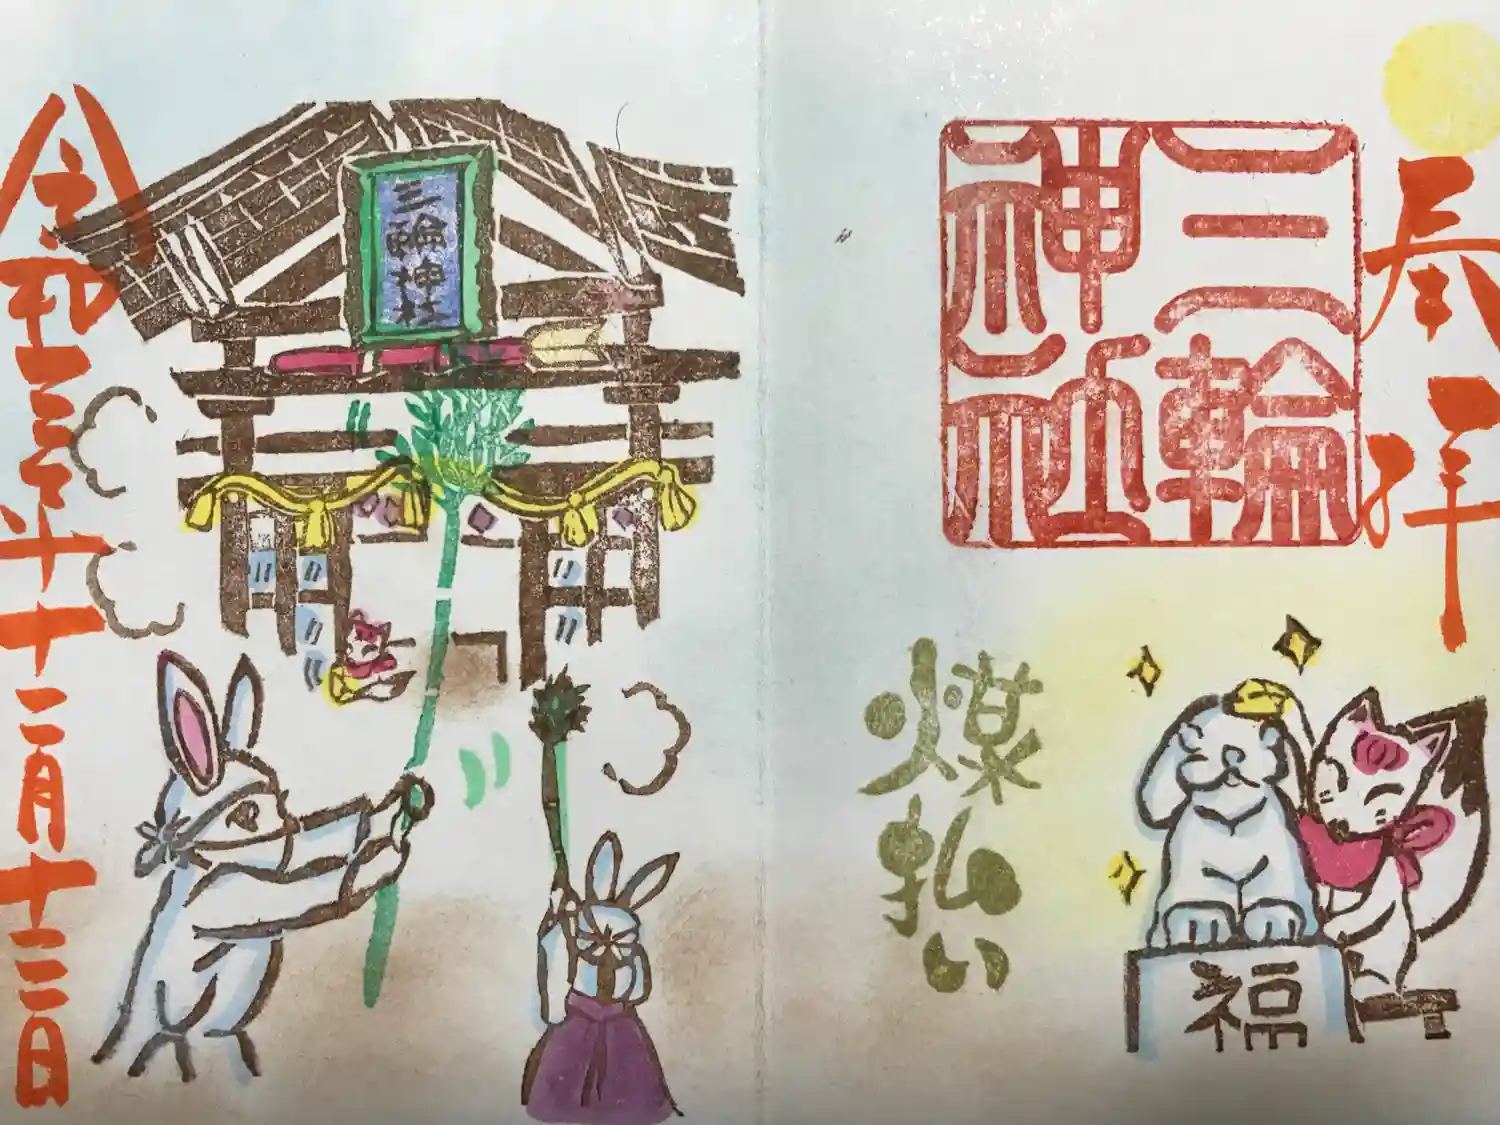 奉拝
三輪
神社
煤払い
福
三輪神社
令和三年十二月十二日